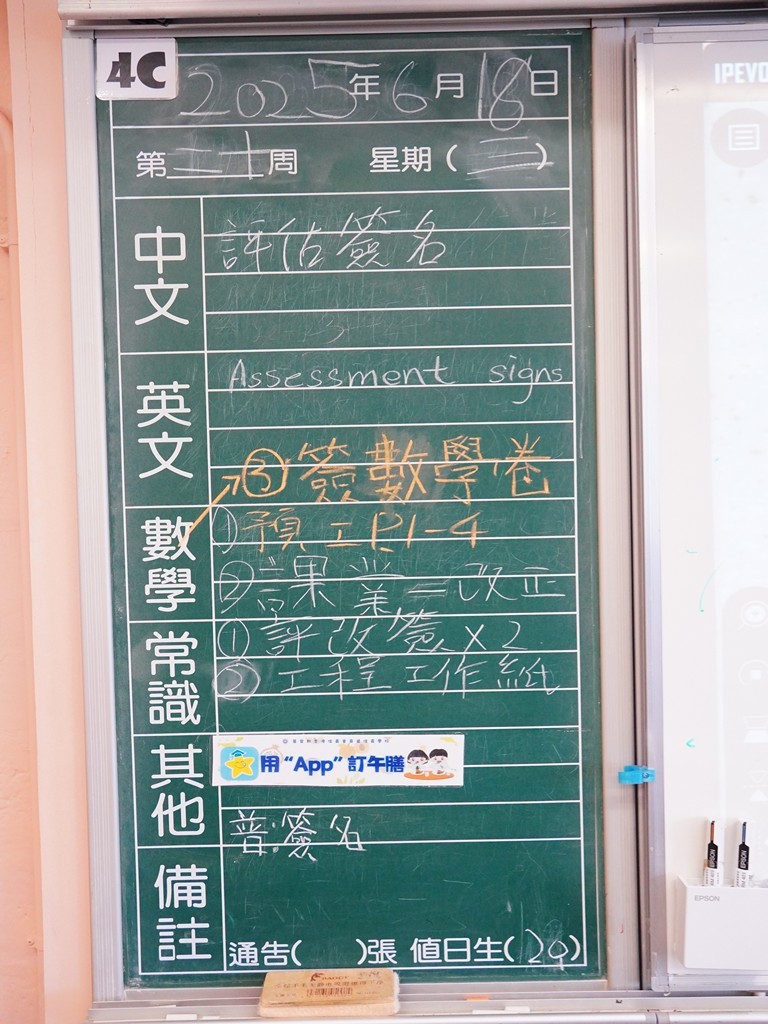 4C
2025年6月18日
第二十周 星期(三)
中文
評估簽名
英文
Assessment signs
數學
③簽數學卷
①預工P.1-4
②課業二改正
常識
①評改簽X2
②工程工作紙
其他
用“App”訂午膳
普:簽名
備註
通告( )張 值日生(20)
IPEVO
EPSON
EPSON
EPSON